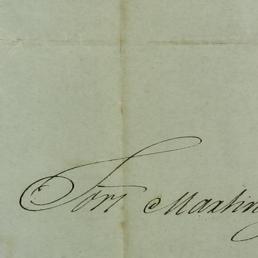 Fort Martin